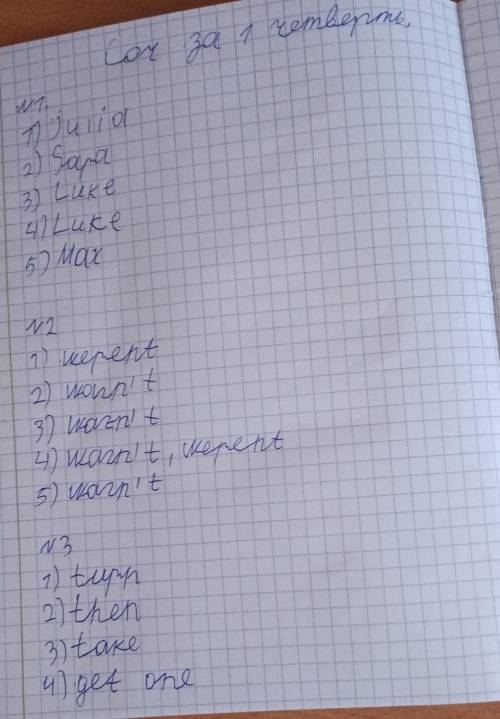 Соч за 1 четверть.
№1.
1) Julia
2) Sapa
3) Luke
4) Luke
5) Max
№2
1) weren't
2) wasn't
3) wasn't
4) wasn't, weren't
5) wasn't
№3
1) turn
2) then
3) take
4) get one